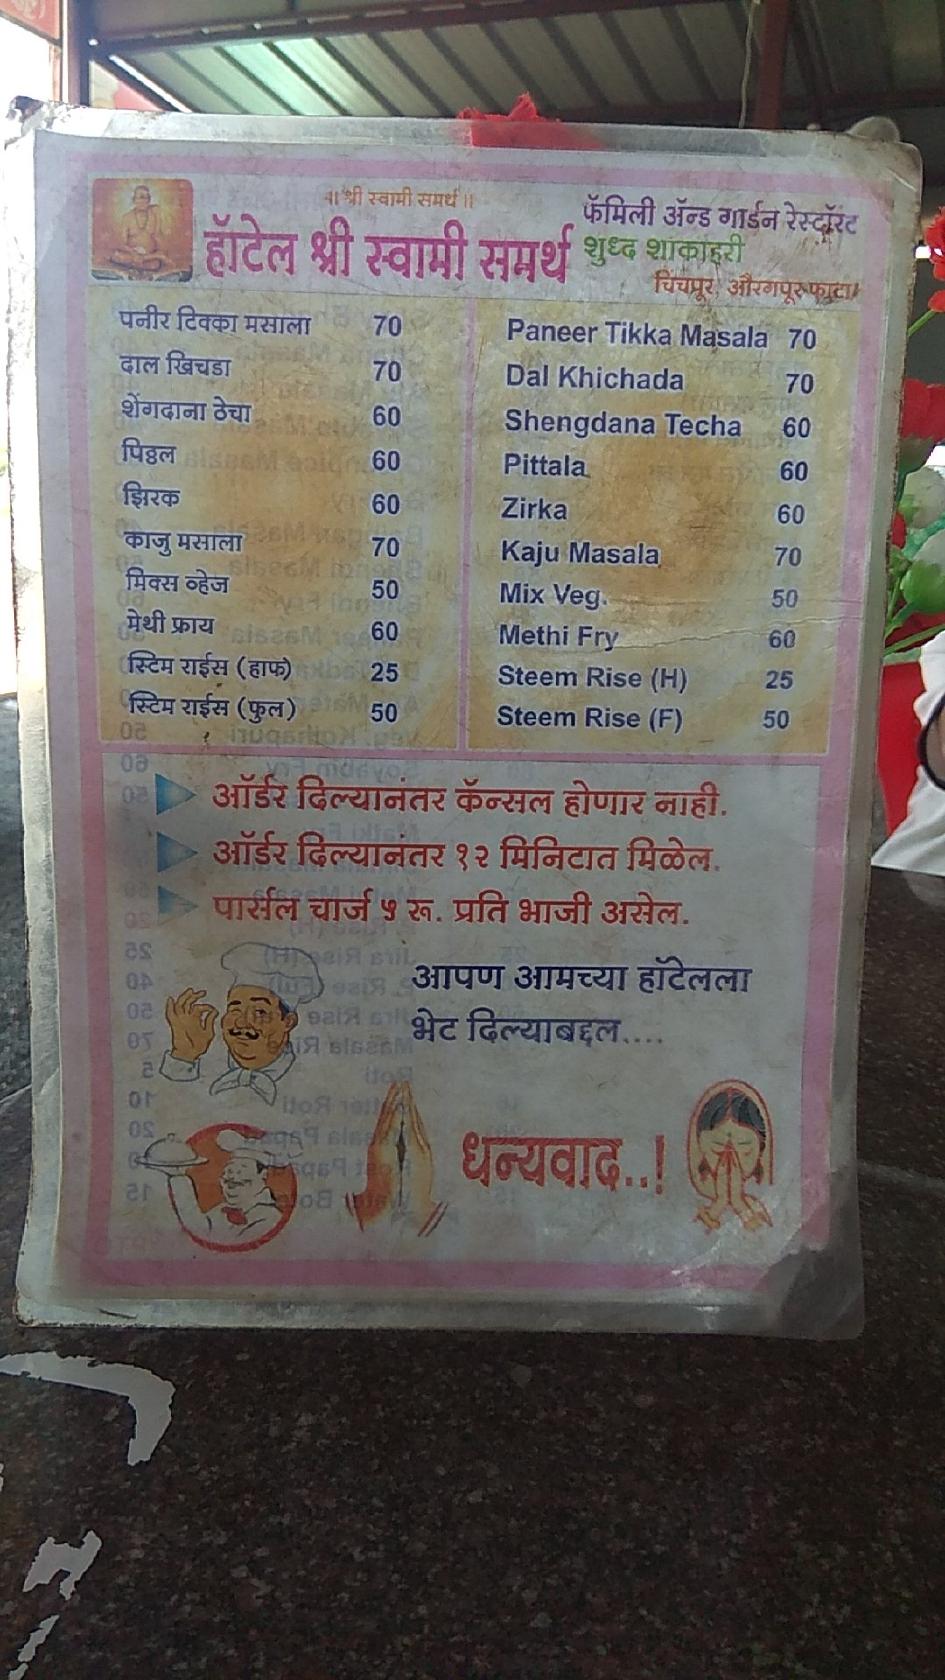 ॥ श्री स्वामी समर्थ ॥
हॉटेल श्री स्वामी समर्थ
फॅमिली ॲन्ड गार्डन रेस्टॉरंट
शुध्द शाकाहरी
चिंचपूर, औरगपूर फाटा
पनीर टिक्का मसाला 70
दाल खिचडा 70
शेंगदाना ठेचा 60
पिठ्ठल 60
झिरक 60
काजु मसाला 70
मिक्स व्हेज 50
मेथी फ्राय 60
स्टिम राईस (हाफ) 25
स्टिम राईस (फुल) 50
Paneer Tikka Masala 70
Dal Khichada 70
Shengdana Techa 60
Pittala 60
Zirka 60
Kaju Masala 70
Mix Veg. 50
Methi Fry 60
Steem Rise (H) 25
Steem Rise (F) 50
ऑर्डर दिल्यानंतर कॅन्सल होणार नाही.
ऑर्डर दिल्यानंतर १२ मिनिटात मिळेल.
पार्सल चार्ज ५ रू. प्रति भाजी असेल.
आपण आमच्या हॉटेलला
भेट दिल्याबद्दल....
धन्यवाद..!